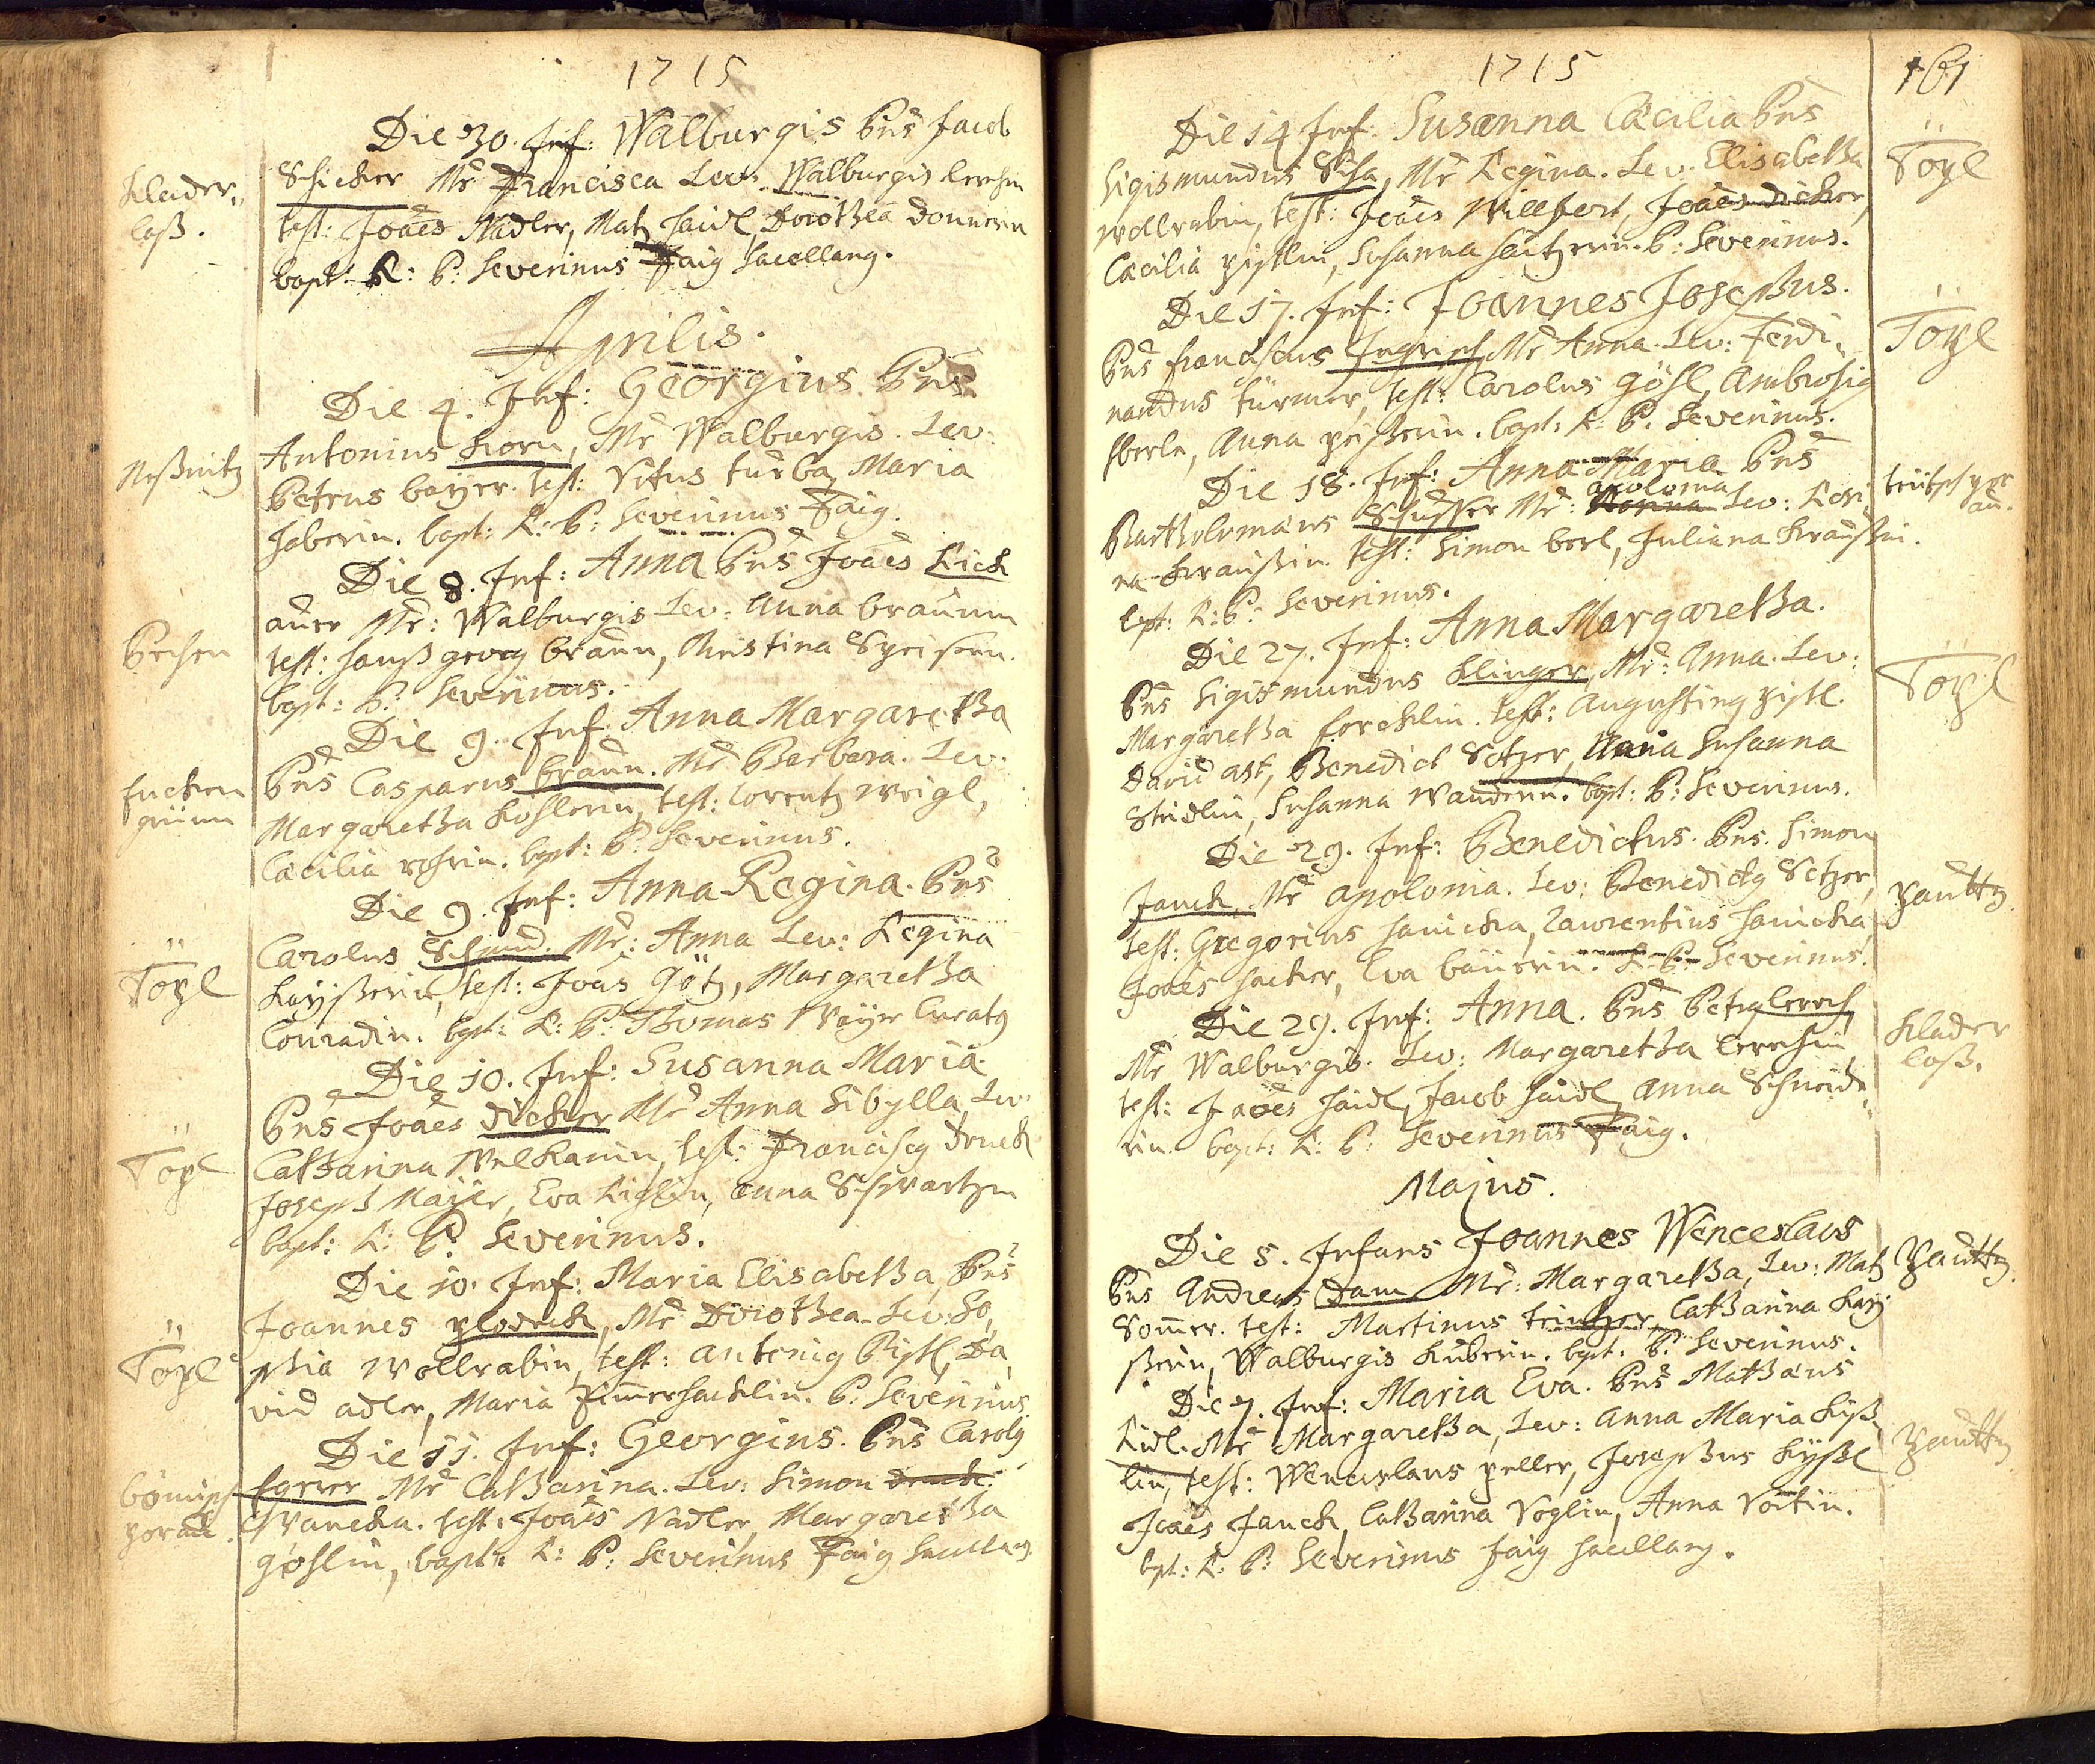 1715
Die 30. Inf: Walburgis Prs Jacob
Schicker Mr Francisca Lev: Walburgis lerchin
test: Joães Nadler, Matz Haidl, Dorothea Donnerin
bapt: R: P: Severinus Faig Sacellang.
Klader„
loß.
Aprilis.
Die 4. Inf: Georgius. Prs
Antonius Horn, Mr Walburgis. Lev:
Petrus bayer. test: Vitus turba, Maria
Haberin. bapt: R: P: Severinus Faig.
Neßnitz
Die 8. Inf: Anna Prs Joães Rick
auer Mr: Walburgis Lev: Anna braunin
test: Hanß georg braun, Christina
bapt: P: Severinus.
Die 9. Inf: Anna Margaretha
Prs Casparus braun. Mr Barbara. Lev:
Margaretha Kohlerin, test: lorentz weigl,
Cæcilia bapt: P: Severinus.
grünn
Die 9. Inf: Anna Regina. Prs
Carolus Schmid. Mr: Anna Lev: Regina
Kayßerin, test: Joas Götz, Margaretha
Conradin. bapt: R: P: Thomas Mayer Curatg
Töpl
Die 10. Inf: Susanna Maria
Prs Joães dicker Mr Anna Sibylla, Lev:
Catharina Welkamin, test: Francisg
Joseph Mayer, Eva Anna Schwartzin
bapt: R: P: Severinus.
Töpl
Die 10. Inf: Maria Elisabetha, Prs
Joannes plodeck, Mr Dorothea. Lev: So„
phia wollrabin, test: antonig Pistl, Da„
vid adler, Maria Zimmerhacklin. P: Severinus.
Töpl
Die 11. Inf: Georgius. Prs Carolg
Egerer Mr Catharina. Lev: Simon
Wanecka. test: Joães Nadler, Margaretha
göslin, bapt: R: P: Severinus Faig Sacellang
bömisch
1715
161
Die 14 Inf: Susanna Cæcilia Prs
Sigismundus Scha, Mr Regina. Lev: Elisabetha
wollrabin, test: Joães Willfert, Joães dicker,
Cæcilia pistlin, Susanna P: Severinus.
Töpl
Die 17. Inf: Joannes Josephus.
Prs Franciscus Mr Anna. Lev: Ferdi„
nandus türmer, test: Carolus gösl, Ambrosig
Eberle, Anna bapt: R: P. Severinus.
Töpl
Die 18. Inf: Anna Maria Prs
apolonia
Bartholomæus Schuster Mr: Lev: Rosi
na Kraußin. test: Simon berl, Juliana Kraußin.
bpt: R: P: Severinus.
Die 27. Inf: Anna Margaretha.
Prs Sigismundus Klinger, Mr: Anna. Lev:
Margaretha test: Augusting pistl.
David ast, Benedict Setzer, Maria Susanna
Steidlin, Susanna wanderin. bapt: P: Severinus.
Töpl
Die 29. Inf: Benedictus. Prs. Simon
Janck, Mr apolonia. Lev: Benedictg Setzer,
test: Gregorius hanicka, Laurentius hanicka,
Joães hacker, Eva bäuerin. R: P: Severinus.
Zautty
Die 29. Inf: Anna. Prs Petrg lerch
Mr Walburgis. Lev: Margaretha lerchin
test: Joães haidl, Jacob haidl, Anna Schneide„
rin. bapt: R: P: Severinus Faig.
Klader
loß.
Majus.
Die 5. Infans Joannes Wenceslaus
Prs Andreas Dam Mr: Margaretha, Lev: Matz
Sommer. test: Martinus Catharina Kay
ßerin, Walburgis Huberin. bpt. P: Severinus.
Zautty.
Die 7. Inf: Maria Eva. Prs Mathæus
Riedl. Mr Margaretha, Lev: Anna Maria Kiß
lin, test: Wenceslaus peller, Josephus Kyßl
Joães Janck, Catharina Voglin, Anna Voitin.
bpt: R: P: Severinus Faig Sacellang.
Zautty